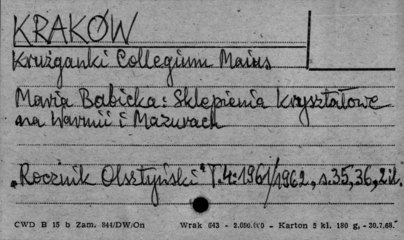 KRAKÓW
Krużganki Collegium Maius
Maria Babicka: Sklepienia kryształowe
na Warmii i Mazurach
„Rocznik Olsztyński" T.4: 1961/1962, s.35,36, 2 il.
CWD B 15 b Zam. 844/DW/On Wrak 643 - 2.000.000 - Karton 5 kl. 180 g, - 30.7.68.